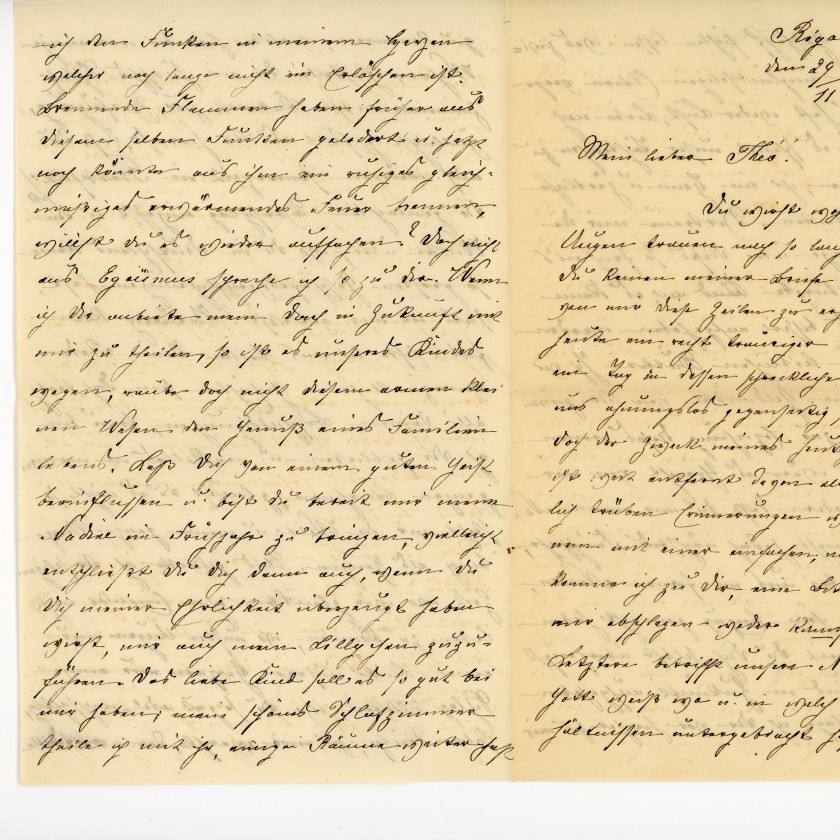 ich den Funken in meinem Herzen
welcher noch lange nicht im Erlöschen ist.
Brennende Flammen haben früher aus
diesem selben Funken gelodert u. jetzt
noch könnte aus ihm ein ruhiges gleich-
mäßiges erwärmendes Feuer brennen,
willst du es wieder auffachen? Doch nicht
aus Egoismus spreche ich so zu dir. Wenn
ich dir anbiete mein Dach in Zukunft mit
mir zu theilen, so ist es unseres Kindes
wegen, raube doch nicht diesem armen klei
nen Wesen den Genuß eines Familien
lebens. Laß dich von einem guten Geist
beeinflussen u. bist du bereit mir meine
Nadine im Frühjahr zu bringen, vielleicht
entschließt du dich dann auch, wenn du
dich meiner Ehrlichkeit überzeugt haben
wirst, mir auch mein Lillychen zuzu-
führen. Das liebe Kind soll es so gut bei
mir haben; mein schönes Schlafzimmer
theile ich mit ihr, einige Räume weiter hast
Riga
den 29
11
Mein lieber Théo!
Du wirst
Augen trauen nach so
du keinen meiner Briefe
von mir diese Zeilen zu
heute ein recht trauriger
ein Tag in dessen schreckliche
uns ahnungslos gegenseitig
doch der Zweck meines
ist weit entfernt davon
lich trüben Erinnerungen
nein mit einer einfachen,
komme ich zu dir, eine
mir abschlagen weder
Letztere betrifft unsere
Gott weiß wo u. in welch
hältnissen untergebracht